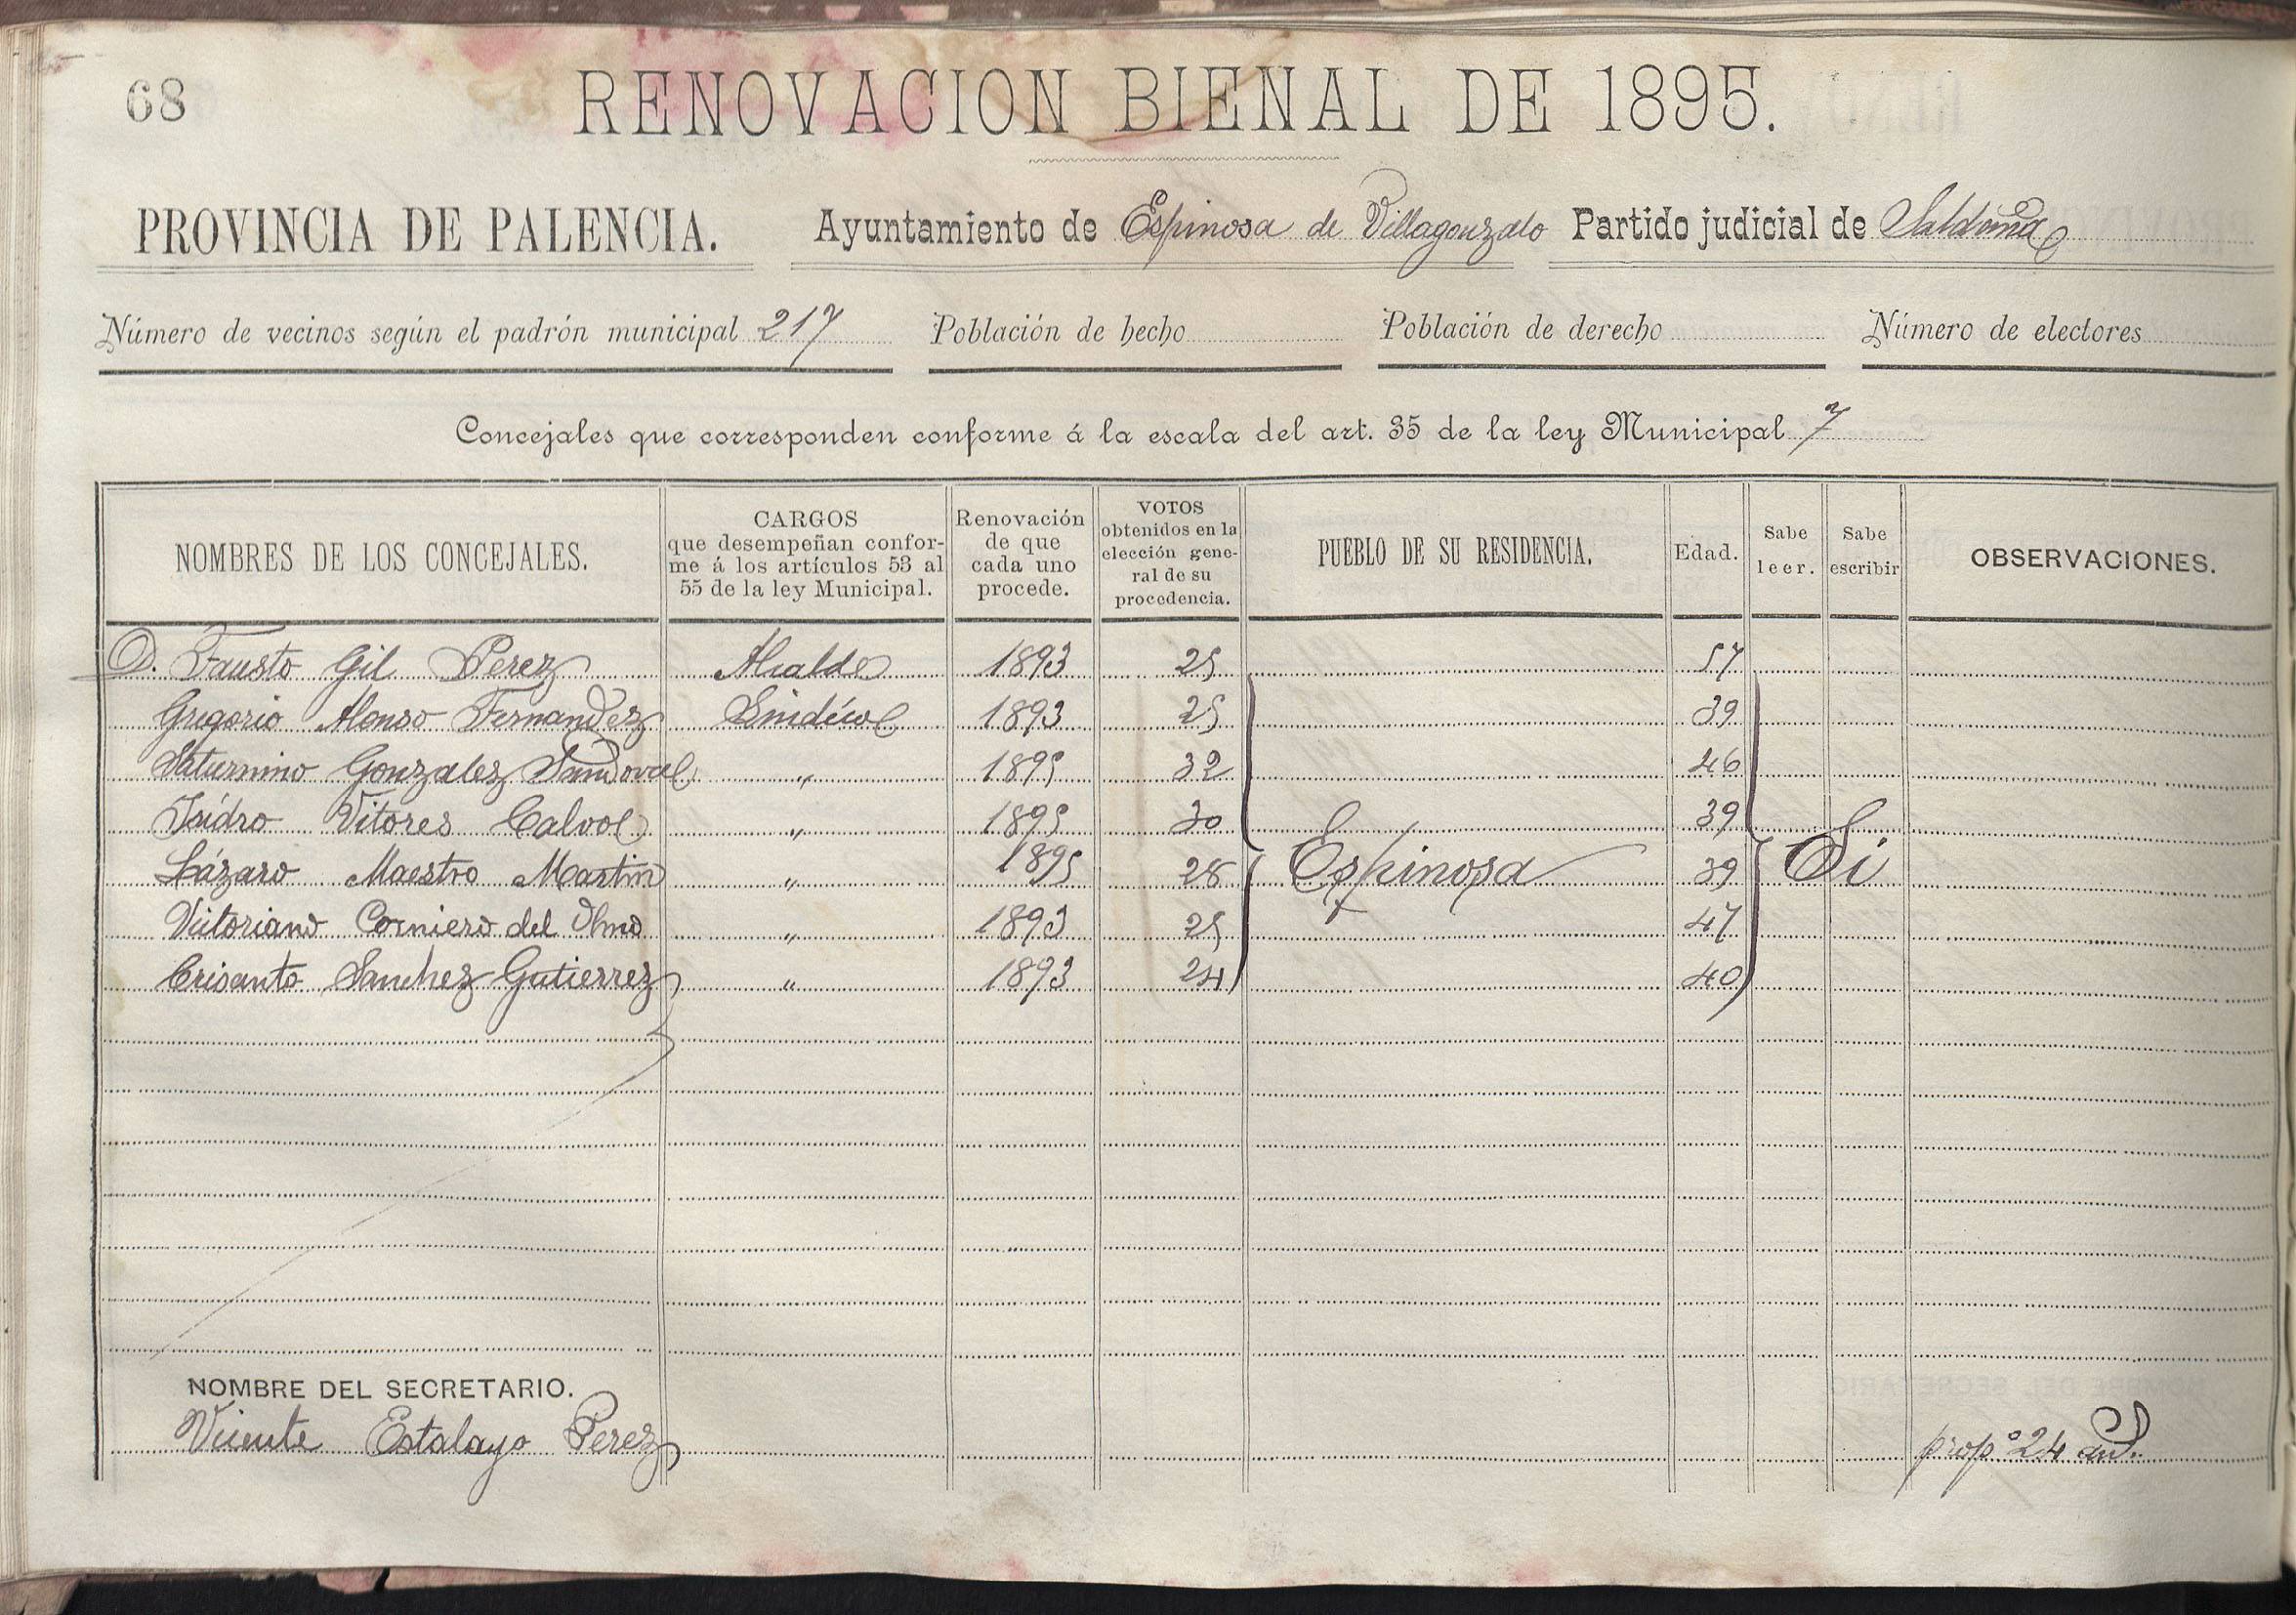 68
RENOVACION BIENAL DE 1895.
PROVINCIA DE PALENCIA. Ayuntamiento de Espinosa de Villagonzalo Partido judicial de Saldaña
Número de vecinos según el padrón municipal 217 Población de hecho Población de derecho Número de electores
Concejales que corresponden conforme á la escala del art. 35 de la ley Municipal 7
NOMBRES DE LOS CONCEJALES.
CARGOS
que desempeñan confor-
me á los artículos 53 al
55 de la ley Municipal.
Renovación
de que
cada uno
procede.
VOTOS
obtenidos en la
elección gene-
ral de su
procedencia.
PUEBLO DE SU RESIDENCIA.
Edad.
Sabe
leer.
Sabe
escribir
OBSERVACIONES.
D. Fausto Gil Perez Alcalde 1893 25 57
Gregorio Alonso Fernandez Sindico 1893 25 39
Saturnino Gonzalez Sandoval " 1895 32 46
Isídro Vitores Calvo " 1895 30 39
Lázaro Maestro Martin " 1895 28 Espinosa 39 Si
Victoriano Corniero del Olmo " 1893 25 47
Crisanto Sanchez Gutierrez " 1893 24 40
NOMBRE DEL SECRETARIO.
Vicente Estalayo Perez
prop.º 24